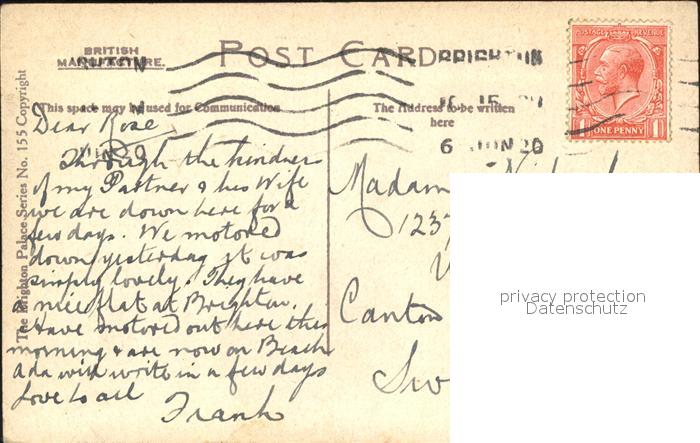 BRITISH
MANUFACTURE.
POST CARD
BRIGHTON
6 JUN 20
POSTAGE REVENUE
1 ONE PENNY 1
This space may be used for Communication
The Address to be written
here
The Brighton Palace Series No. 155 Copyright
Dear Rose
Through the kindness
of my Partner & his Wife
we are down here for a
few days. We motored
down yesterday it was
simply lovely. They have
a nice flat at Brighton.
Have motored out here this
morning & are now on Beach
Ada will write in a few days
Love to all
Frank
Madam
Canton
privacy protection
Datenschutz